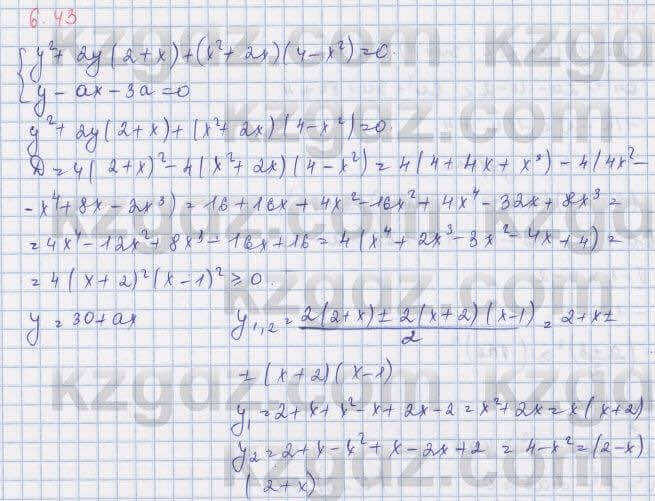 6.43
{ y² + 2y(2+x) + (x²+2x)(4-x²) = 0.
{ y - ax - 3a = 0
y² + 2y(2+x) + (x²+2x)(4-x²) = 0.
D = 4(2+x)² - 4(x²+2x)(4-x²) = 4(4+4x+x²) - 4(4x² -
- x⁴ + 8x - 2x³) = 16+16x+4x²-16x²+4x⁴-32x+8x³ =
= 4x⁴ - 12x² + 8x³ - 16x + 16 = 4(x⁴+2x³-3x²-4x+4) =
= 4(x+2)²(x-1)² ≥ 0.
y = 3a+ax
y₁,₂ = 2(2+x) ± 2(x+2)(x-1) / 2 = 2+x ±
± (x+2)(x-1)
y₁ = 2+x+x²-x+2x-2 = x²+2x = x(x+2)
y₂ = 2+x-x²+x-2x+2 = 4-x² = (2-x)
(2+x)
kzgdz.com